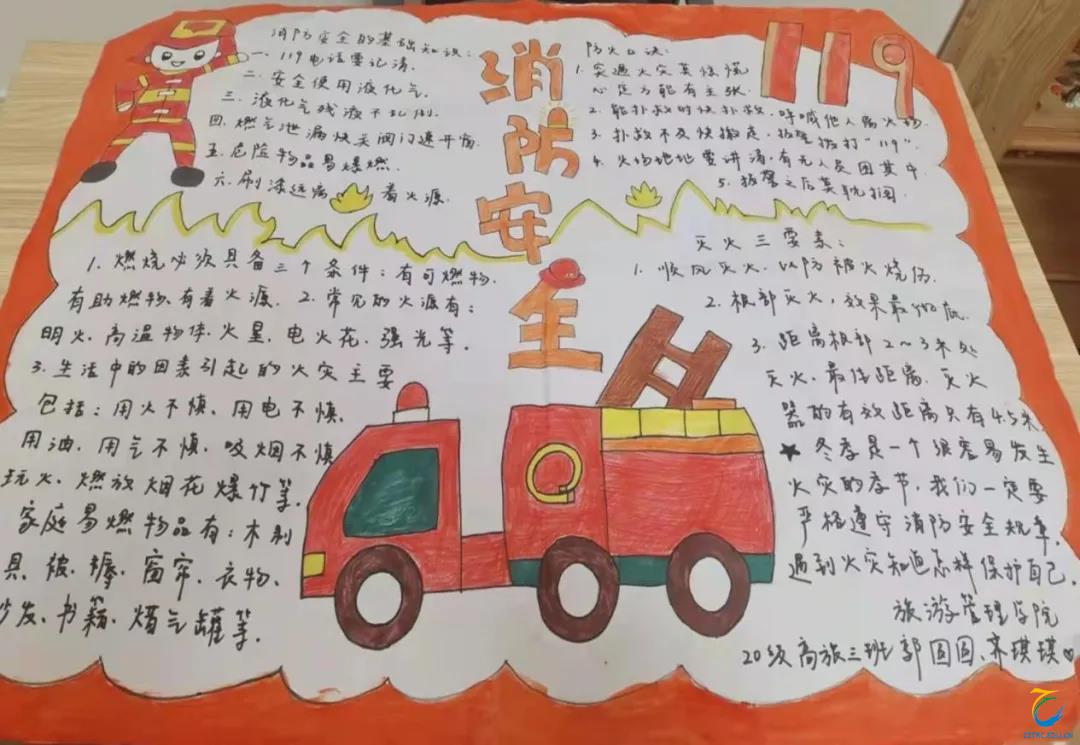 消防安全的基础知识:
一. 119电话要记清.
二. 安全使用液化气.
三. 液化气残液不乱倒.
四. 燃气泄漏快关阀门速开窗.
五. 危险物品易爆燃.
六. 刷漆远离 着火源.
消防安全
防火口诀:
119
1. 突遇火灾莫惊慌
心定方能有主张.
2. 能扑救时快扑救, 呼喊他人离火场.
3. 扑救不及快撤走, 报警拨打"119".
4. 火场地址要讲清, 有无人员困其中.
5. 报警之后莫耽搁.
1. 燃烧必须具备三个条件: 有可燃物.
有助燃物. 有着火源. 2. 常见的火源有:
明火. 高温物体. 火星. 电火花. 强光等.
3. 生活中的因素引起的火灾主要
包括: 用火不慎. 用电不慎.
用油. 用气不慎. 吸烟不慎
玩火. 燃放烟花爆竹等.
家庭易燃物品有: 木制
具. 被. 褥. 窗帘. 衣物.
沙发. 书籍. 煤气罐等.
灭火三要素:
1. 顺风灭火. 以防被火烧伤.
2. 根部灭火, 效果最彻底.
3. 距离根部2~3米处
灭火. 最佳距离. 灭火
器的有效距离只有4.5米.
★ 冬季是一个很容易发生
火灾的季节, 我们一定要
严格遵守消防安全规章,
遇到火灾知道怎样保护自己.
旅游管理学院
20级高旅三班 郭圆圆. 齐琪琪♡